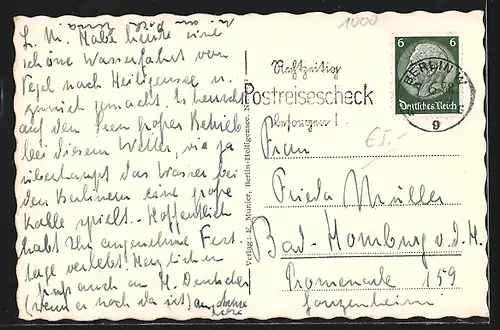 L. M. Habe heute eine
schöne Wasserfahrt von
Tegel nach Heiligensee u.
zurück gemacht. Es herrscht
auf den Seen großer Betrieb
bei diesem Wetter, wie ja
überhaupt das Wasser bei
den Berlinern eine große
Rolle spielt. - Hoffentlich
habt Ihr angenehme Fest-
tage verlebt! Herzlichen
Gruß auch an H. Deutscher
(wenn er noch da ist) an
Verlag: E. Munier, Berlin-Heiligensee
1000
6 6
Deutsches Reich
BERLIN W
9
Rechtzeitig
Postreisescheck
besorgen!
£5.-
Frau
Frieda Müller
Bad-Homburg v.d.H.
Promenade 159